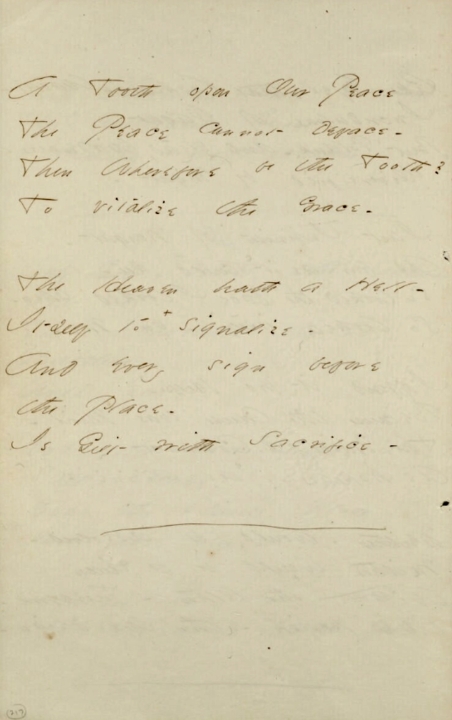 A Tooth opon Our Peace
The Peace cannot deface -
Then Wherefore be the Tooth?
To vitalize the Grace -
The Heaven hath a Hell -
Itself to + signalize -
And every sign before
the Place -
Is Gilt with Sacrifice -